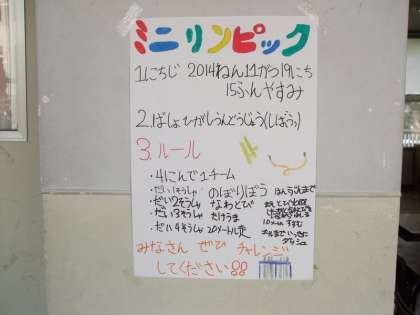 ミニリンピック
1.にちじ 2014ねん11がつ19にち
15ふんやすみ
2.ばしょ ひがしうんどうじょう(しばふ)
3.ルール
・4にんで1チーム
・だい1そうしゃ のぼりぼう
・だい2そうしゃ なわとび
・だい3そうしゃ たけうま
・だい4そうしゃ 20メートル走
みなさん ぜひ チャレンジ
してください!!